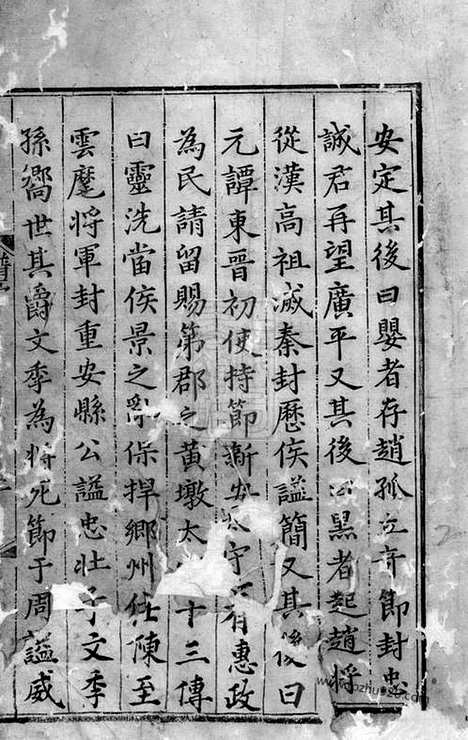 安定其後曰嬰者存趙孤立奇節封忠
誠君再望廣平又其後曰黑者起趙將
從漢高祖滅秦封歷侯諡簡又其後曰
元譚東晉初使持節新安太守有惠政
為民請留賜第郡之黄墩太十三傳
曰靈洗當侯景之亂保捍鄉州仕陳至
雲麾將軍封重安縣公諡忠壯子文季
孫嚮世其爵文季為將死節于周諡威
譜